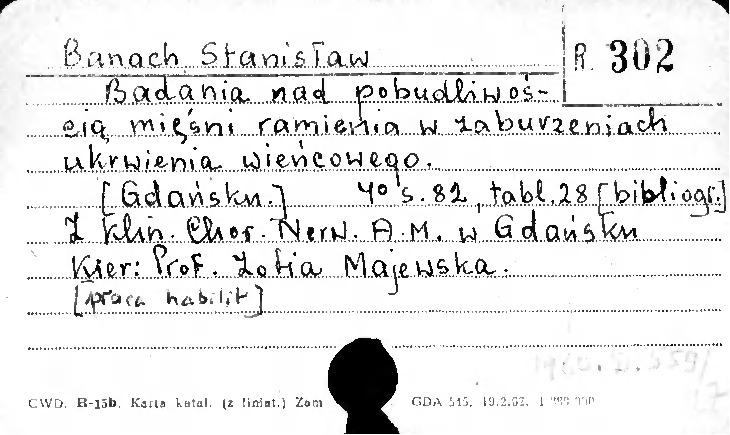 Banach Stanisław
R. 302
Badania nad pobudliwoś-
cią mięśni ramienia w zaburzeniach
ukrwienia wieńcowego.
[Gdańsku.] 4° s. 82, tabl. 28 [bibliogr.]
Z Klin. Chor. Nerw. A.M. w Gdańsku
Kier: Prof. Zofia Majewska.
[praca habilit]
CWD. R-15b. Karta katal. (z liniat.) Zam
GDA 515. 19.2.62.